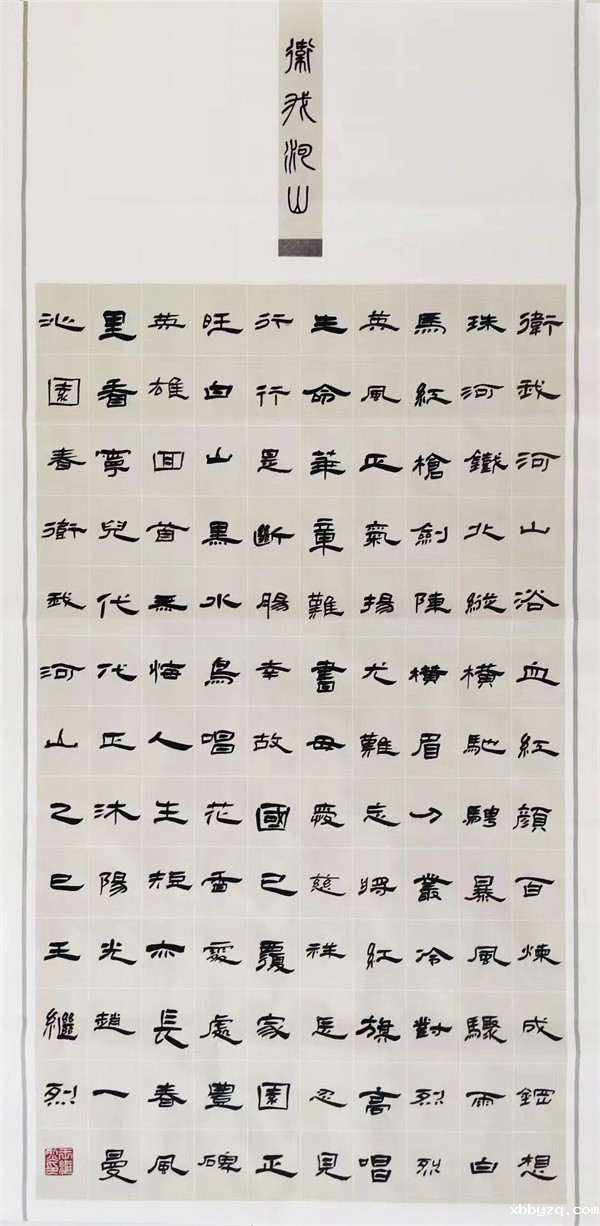 衛我河山
衛我河山浴血紅顏百煉成鋼想
珠河鐵北縱橫馳騁暴風驟雨白
馬紅槍劍陳橫眉刀叢冷對烈烈
英風正氣揚尤難忘將紅旗高唱
生命華章難書母愛慈祥叵忍見
行行是斷腸幸故國已覆家園正
旺白山黑水鳥唱花香處處豐碑
英雄回首無悔人生短亦長春風
里看寧兒代代正沐陽光趙一曼
沁園春衛我河山乙巳王繼烈
xbbyzq.com